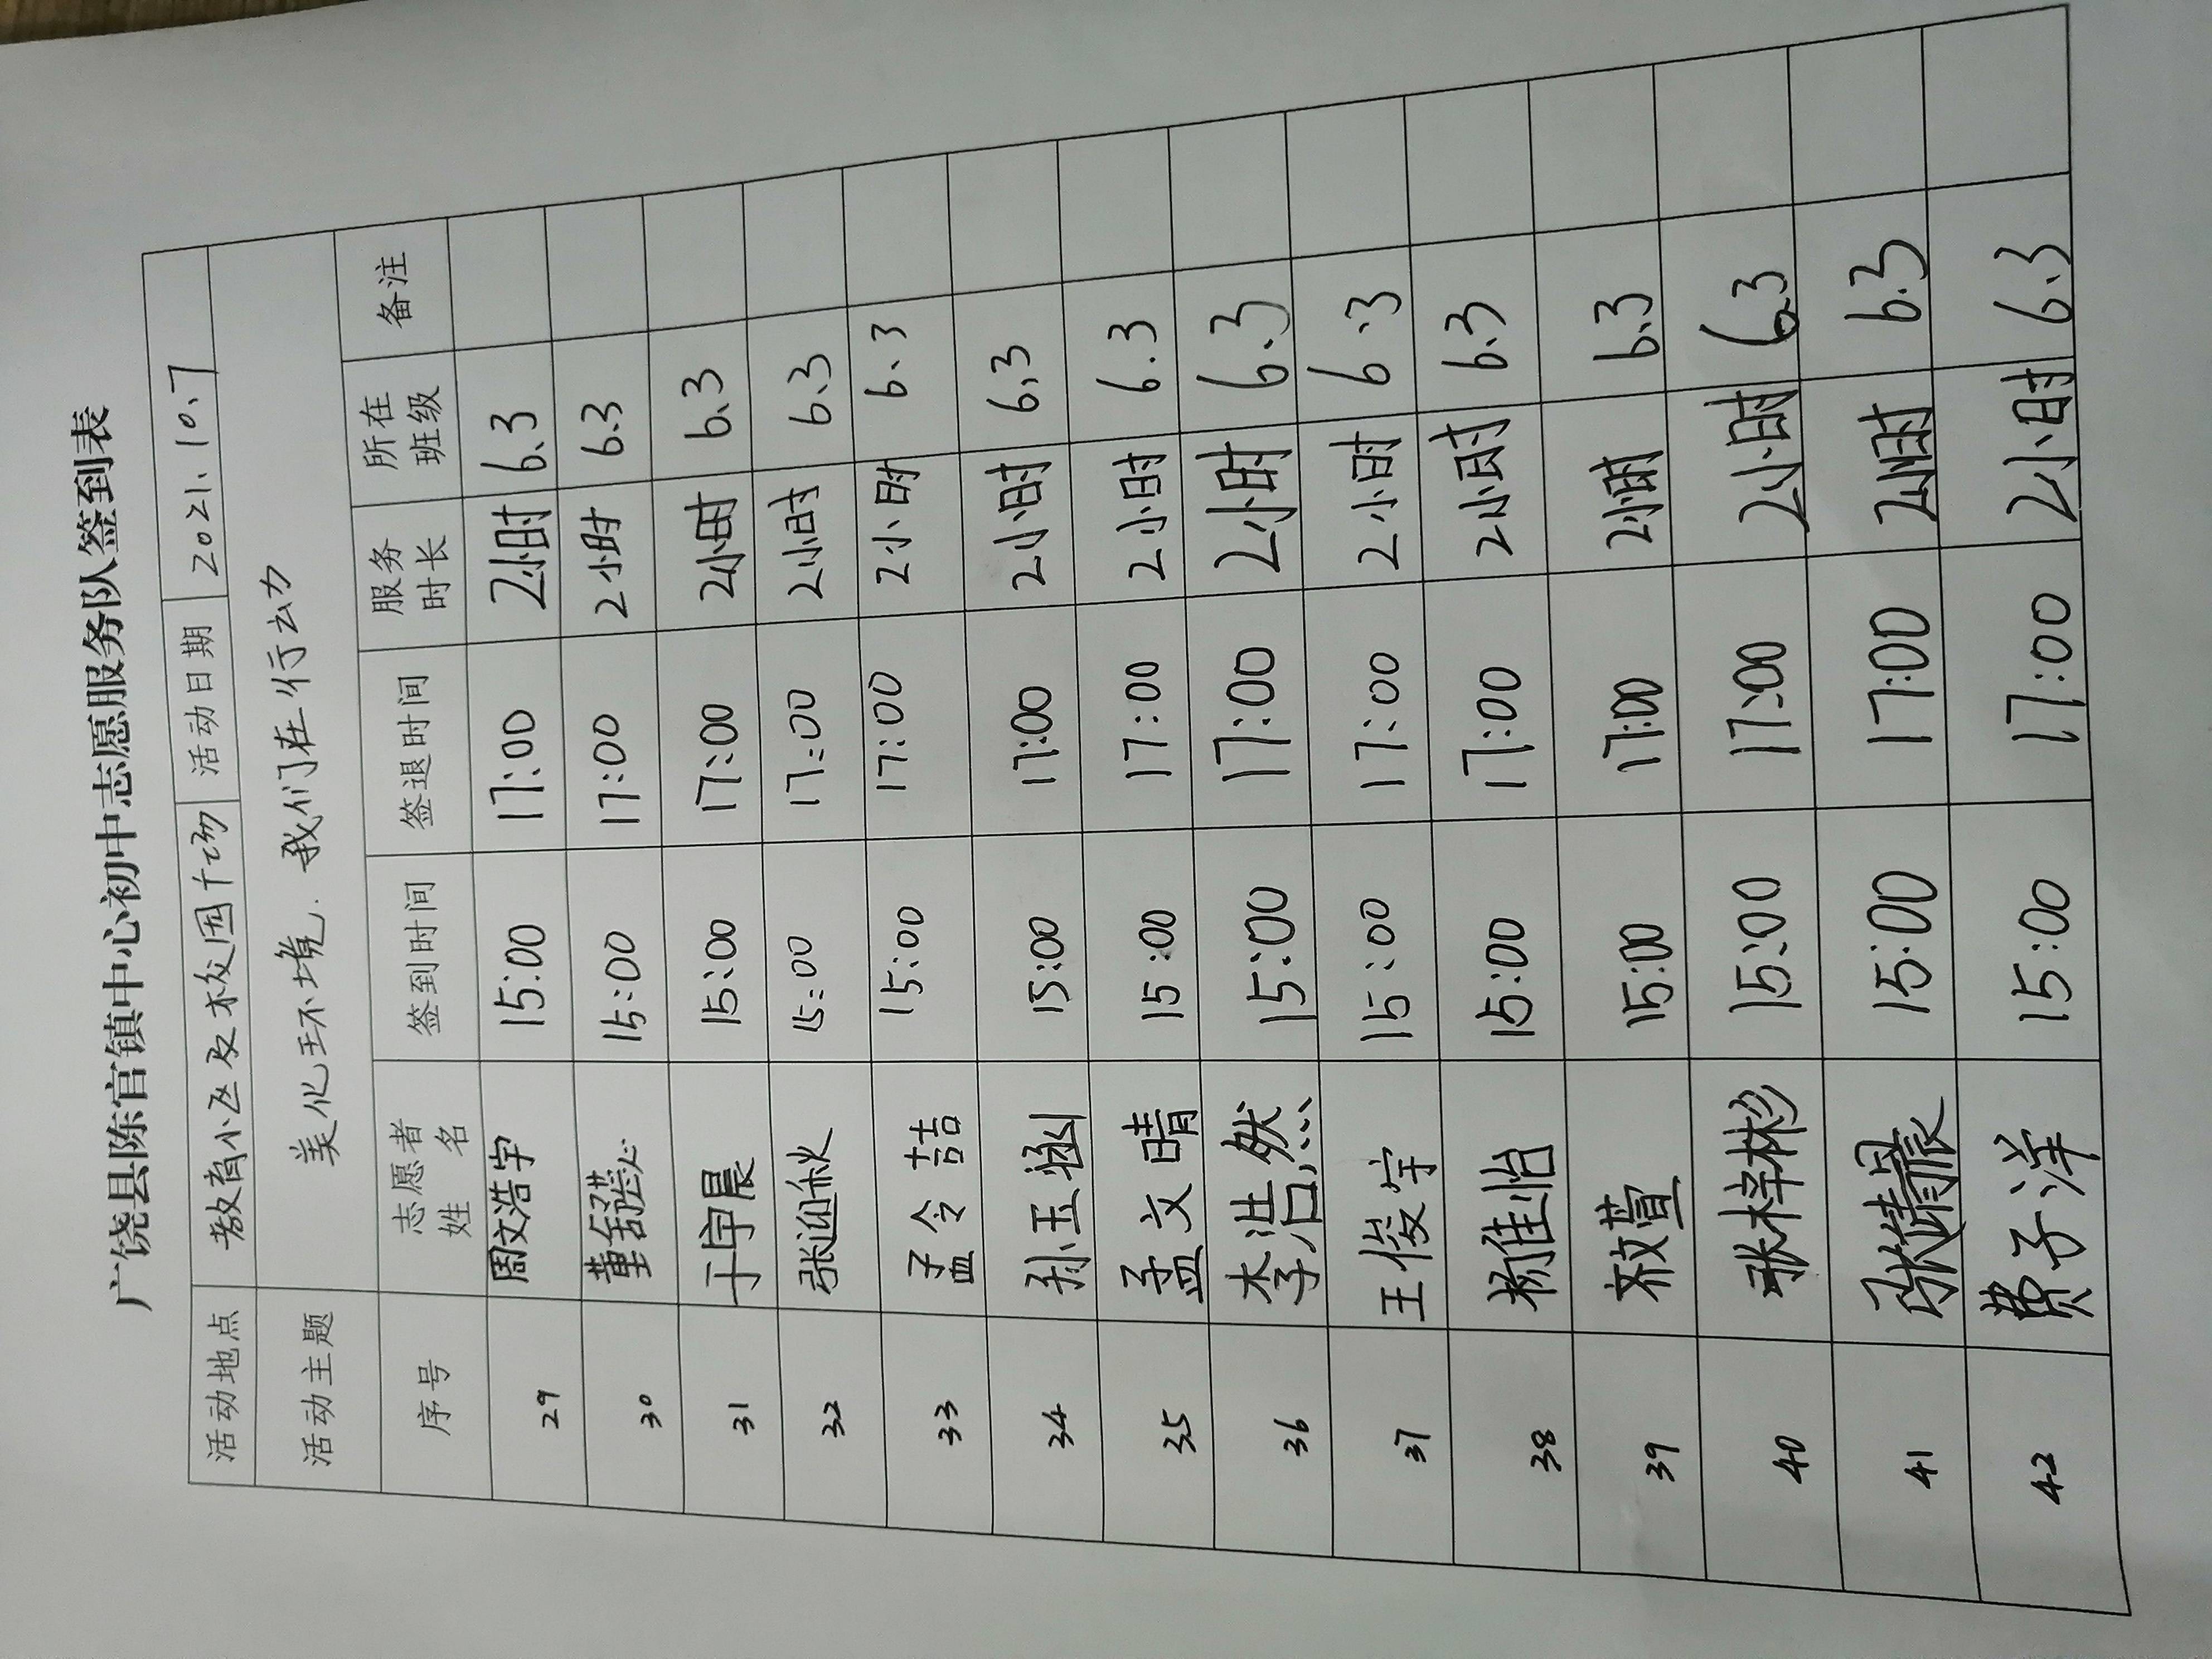 广饶县陈官镇中心初中志愿服务队签到表
活动地点 教育小区及校园广场 活动日期 2021.10.7
活动主题 美化环境.我们在行动
序号 志愿者姓名 签到时间 签退时间 服务时长 所在班级 备注
29 周文浩宇 15:00 17:00 2小时 6.3
30 董 15:00 17:00 2小时 6.3
31 于宇晨 15:00 17:00 2小时 6.3
32 张迎秋 15:00 17:00 2小时 6.3
33 孟令喆 15:00 17:00 2小时 6.3
34 孙玉涵 15:00 17:00 2小时 6.3
35 孟文晴 15:00 17:00 2小时 6.3
36 李浩然 15:00 17:00 2小时 6.3
37 王俊宇 15:00 17:00 2小时 6.3
38 杨佳怡 15:00 17:00 2小时 6.3
39 齐文萱 15:00 17:00 2小时 6.3
40 张梓彬 15:00 17:00 2小时 6.3
41 张 15:00 17:00 2小时 6.3
42 费子洋 15:00 17:00 2小时 6.3